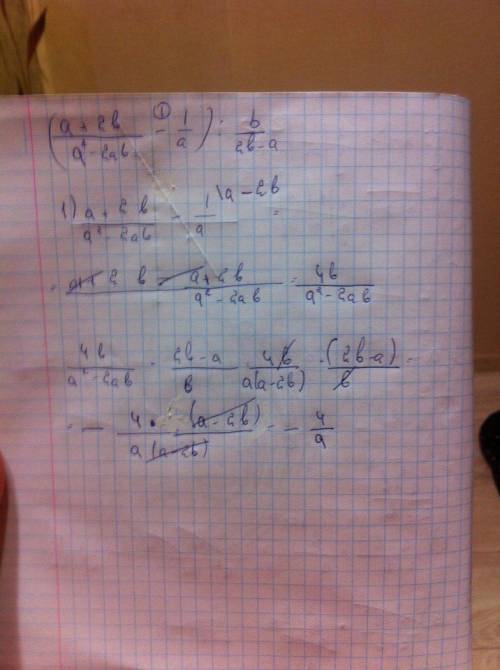 ① 
((a + 2b)/(a² - 2ab) - 1/a) : b/(2b-a)
1) (a + 2b)/(a² - 2ab) - 1/a \a - 2b =
= (a + 2b - a + 2b)/(a² - 2ab) = 4b/(a² - 2ab)
4b/(a² - 2ab) · (2b-a)/b 4b/(a(a-2b)) · (2b-a)/b =
= - 4 · (a - 2b)/(a (a-2b)) = - 4/a